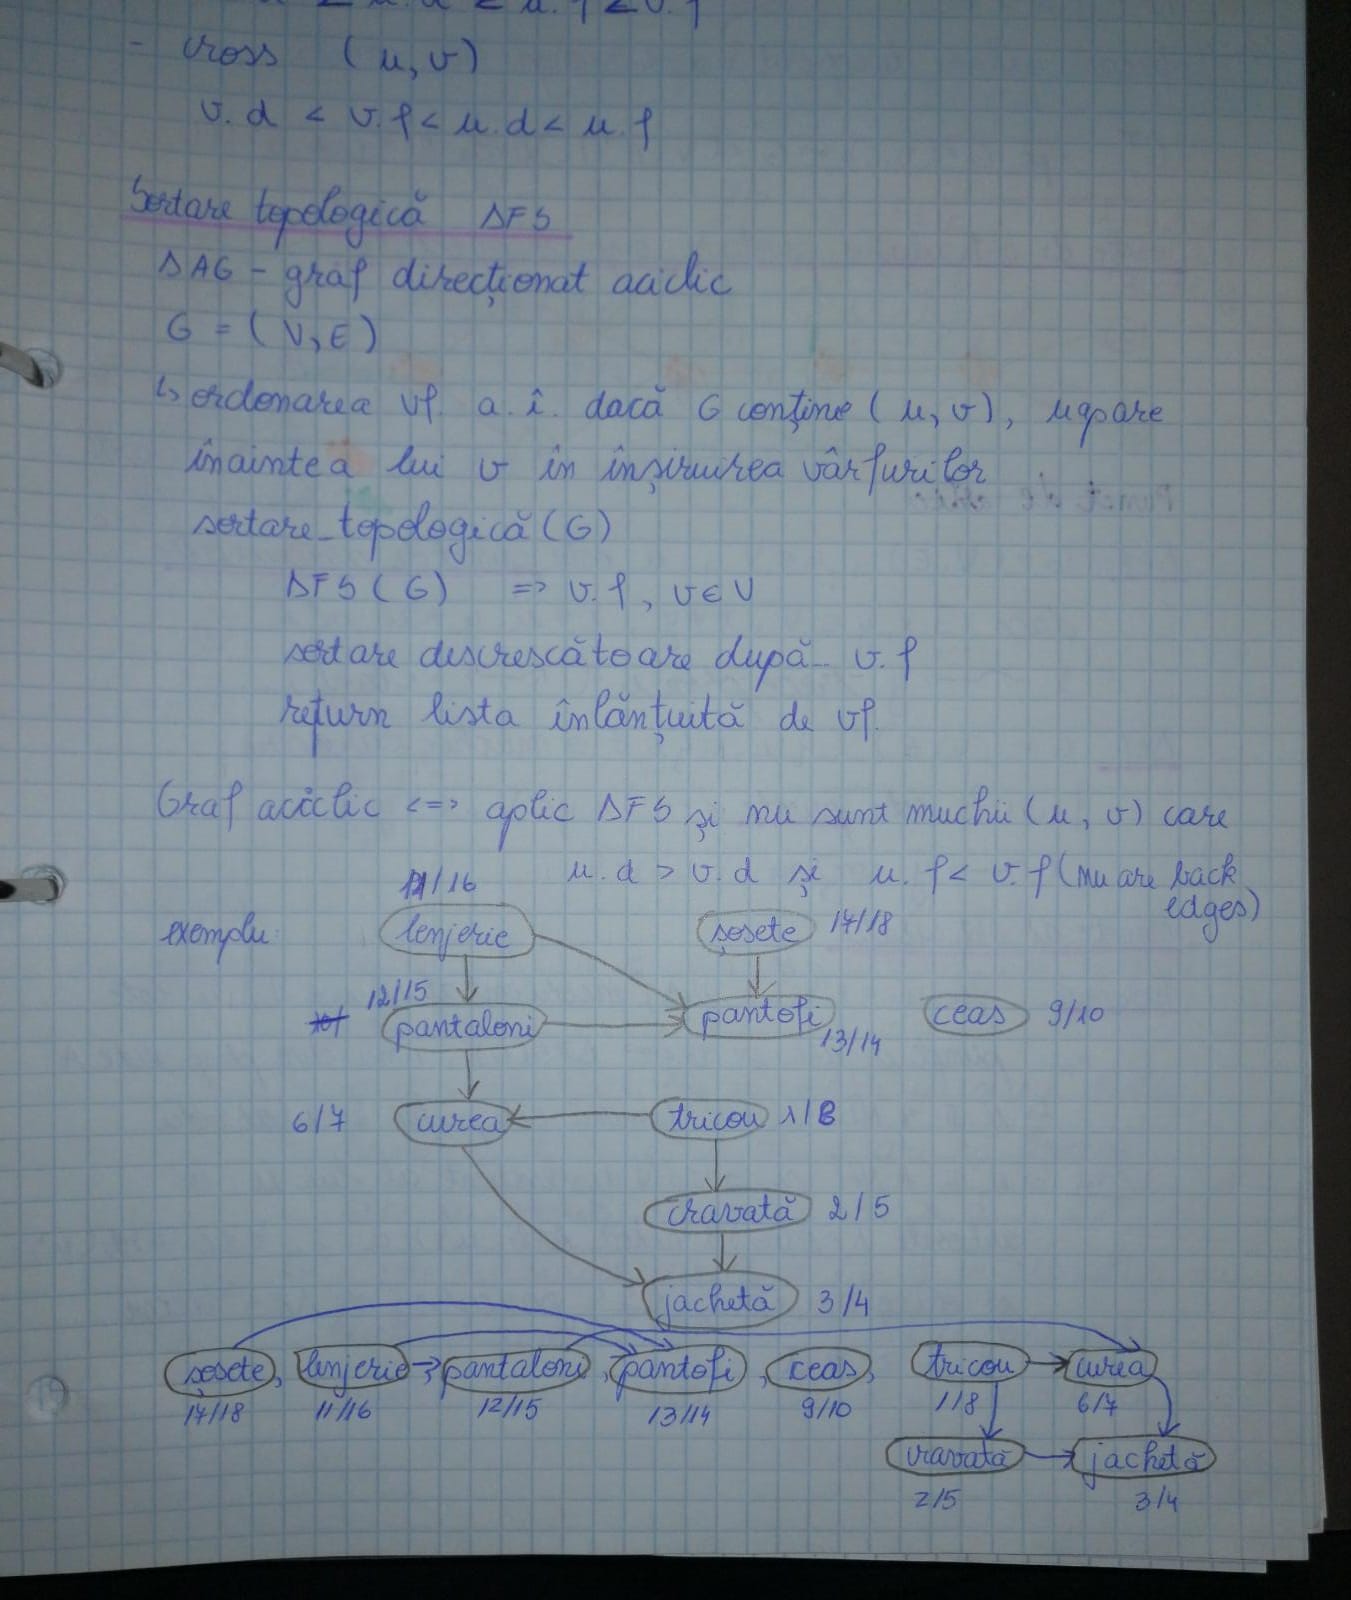 - cross (u, v)
v.d < v.f < u.d < u.f
Sortare topologică DFS
DAG - graf direcționat aciclic
G = (V, E)
↳ ordonarea vf. a.î. dacă G conține (u, v), u apare
înaintea lui v în înșiruirea vârfurilor
sortare_topologică (G)
DFS (G) => v.f, v∈V
sortare descrescătoare după v.f
return lista înlănțuită de vf.
Graf aciclic <=> aplic DFS și nu sunt muchii (u, v) care
u.d > v.d și u.f < v.f (nu are back
edges)
11/16
exemplu: lenjerie șosete 17/18
12/15
pantaloni pantofi ceas 9/10
13/14
6/7 curea tricou 1/8
cravată 2/5
jachetă 3/4
șosete, lenjerie → pantaloni, pantofi, ceas, tricou → curea
17/18 11/16 12/15 13/14 9/10 1/8 6/7
cravată → jachetă
2/5 3/4